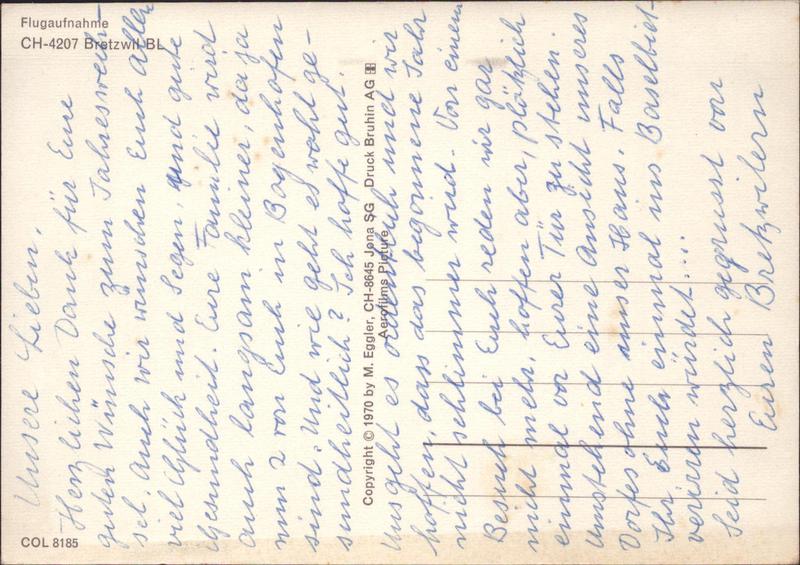 Flugaufnahme
CH-4207 Bretzwil BL
Unsere Lieben,
Herzlichen Dank für Eure
guten Wünsche zum Jahreswech-
sel. Auch wir wünschen Euch Allen
viel Glück und Segen, und gute
Gesundheit. Eure Familie wird
auch langsam kleiner, da ja
nun 2 von Euch in Bogenhofen
sind. Und wie geht es wohl ge-
sundheitlich? Ich hoffe gut.
Uns geht es ordentlich und wir
hoffen, dass das begonnene Jahr
nicht schlimmer wird. Von einem
Besuch bei Euch reden wir gar
nicht mehr, hoffen aber, plötzlich
einmal vor Eurer Tür zu stehen.
Umstehend eine Ansicht unseres
Dorfes ohne unser Haus. Falls
Ihr Euch einmal ins Baselbiet
verirren würdet...
Seid herzlich gegrüsst von
Euren Bretzwilern
Copyright © 1970 by M. Eggler, CH-8645 Jona SG Druck Bruhin AG
Aerofilms Picture
COL 8185